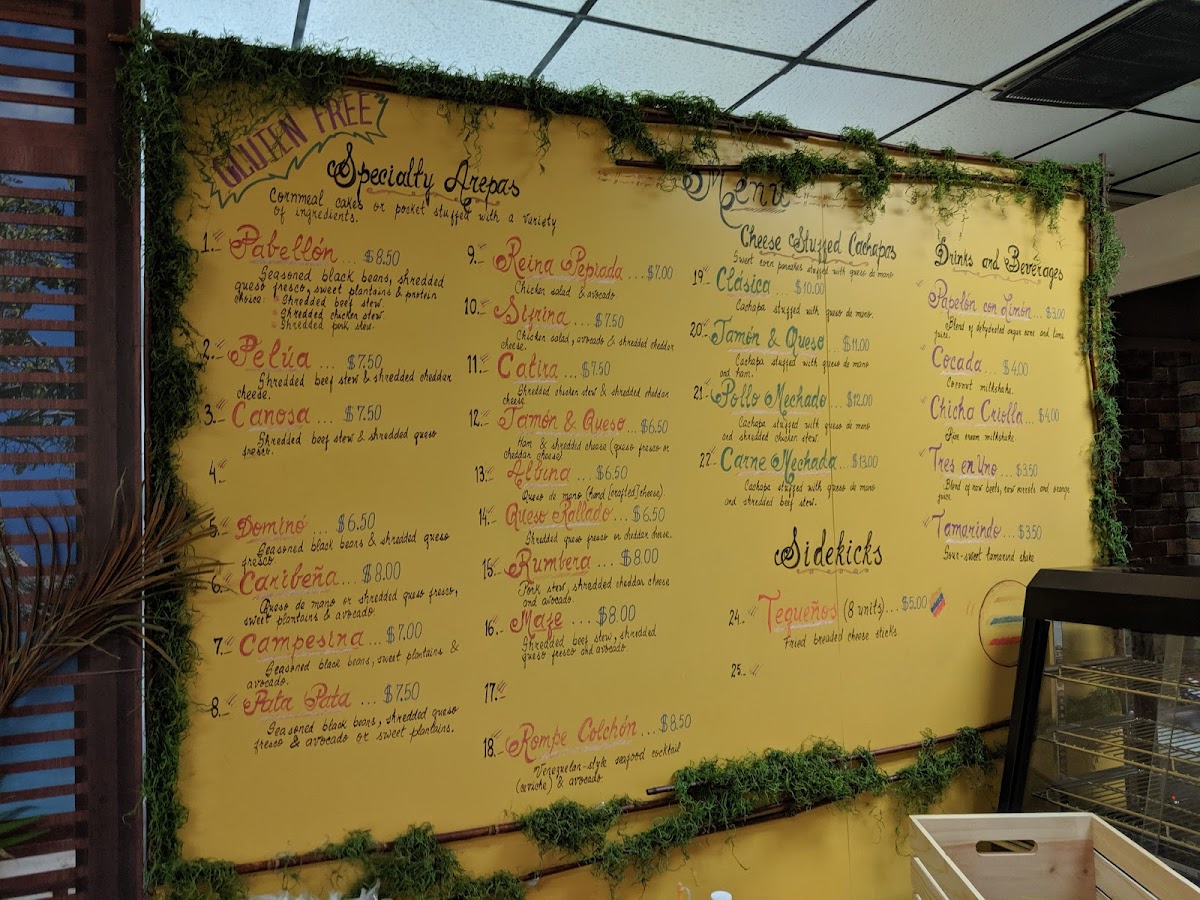 GLUTEN FREE
Specialty Arepas
Cornmeal cakes or pocket stuffed with a variety
of ingredients.
1.- Pabellón ... $8.50
Seasoned black beans, shredded
queso fresco, sweet plantains & protein
choice: Shredded beef stew.
Shredded chicken stew.
Shredded pork stew.
2.- Pelúa ... $7.50
Shredded beef stew & shredded cheddar
cheese.
3.- Canosa ... $7.50
Shredded beef stew & shredded queso
fresco.
4.-
5.- Dominó ... $6.50
Seasoned black beans & shredded queso
fresco.
6.- Caribeña ... $8.00
Queso de mano or shredded queso fresco,
sweet plantains & avocado.
7.- Campesina ... $7.00
Seasoned black beans, sweet plantains &
avocado.
8.- Pata Pata ... $7.50
Seasoned black beans, shredded queso
fresco & avocado or sweet plantains.
9.- Reina Pepiada ... $7.00
Chicken salad & avocado
10.- Sifrina ... $7.50
Chicken salad, avocado & shredded cheddar
cheese.
11.- Catira ... $7.50
Shredded chicken stew & shredded cheddar
cheese
12.- Jamón & Queso ... $6.50
Ham & shredded cheese (queso fresco or
cheddar cheese)
13.- Albina ... $6.50
Queso de mano (hand crafted cheese).
14.- Queso Rallado ... $6.50
Shredded queso fresco or cheddar cheese.
15.- Rumbera ... $8.00
Pork stew, shredded cheddar cheese
and avocado.
16.- Maje ... $8.00
Shredded beef stew, shredded
queso fresco and avocado.
17.-
18.- Rompe Colchón ... $8.50
Venezuelan-style seafood cocktail
(ceviche) & avocado
Menu
Cheese Stuffed Cachapas
Sweet corn pancakes stuffed with queso de mano
19.- Clásica ... $10.00
Cachapa stuffed with queso de mano.
20.- Jamón & Queso ... $11.00
Cachapa stuffed with queso de mano
and ham.
21.- Pollo Mechado ... $12.00
Cachapa stuffed with queso de mano
and shredded chicken stew.
22.- Carne Mechada ... $13.00
Cachapa stuffed with queso de mano
and shredded beef stew.
Sidekicks
24.- Tequeños (8 units)... $5.00
Fried breaded cheese sticks
25.-
Drinks and Beverages
Papelón con Limón ... $3.00
Blend of dehydrated sugar cane and lime
juice.
Cocada ... $4.00
Coconut milkshake.
Chicha Criolla ... $4.00
Rice cream milkshake.
Tres en Uno ... $3.50
Blend of raw beets, raw carrots and orange
juice.
Tamarindo ... $3.50
Sour-sweet tamarind shake